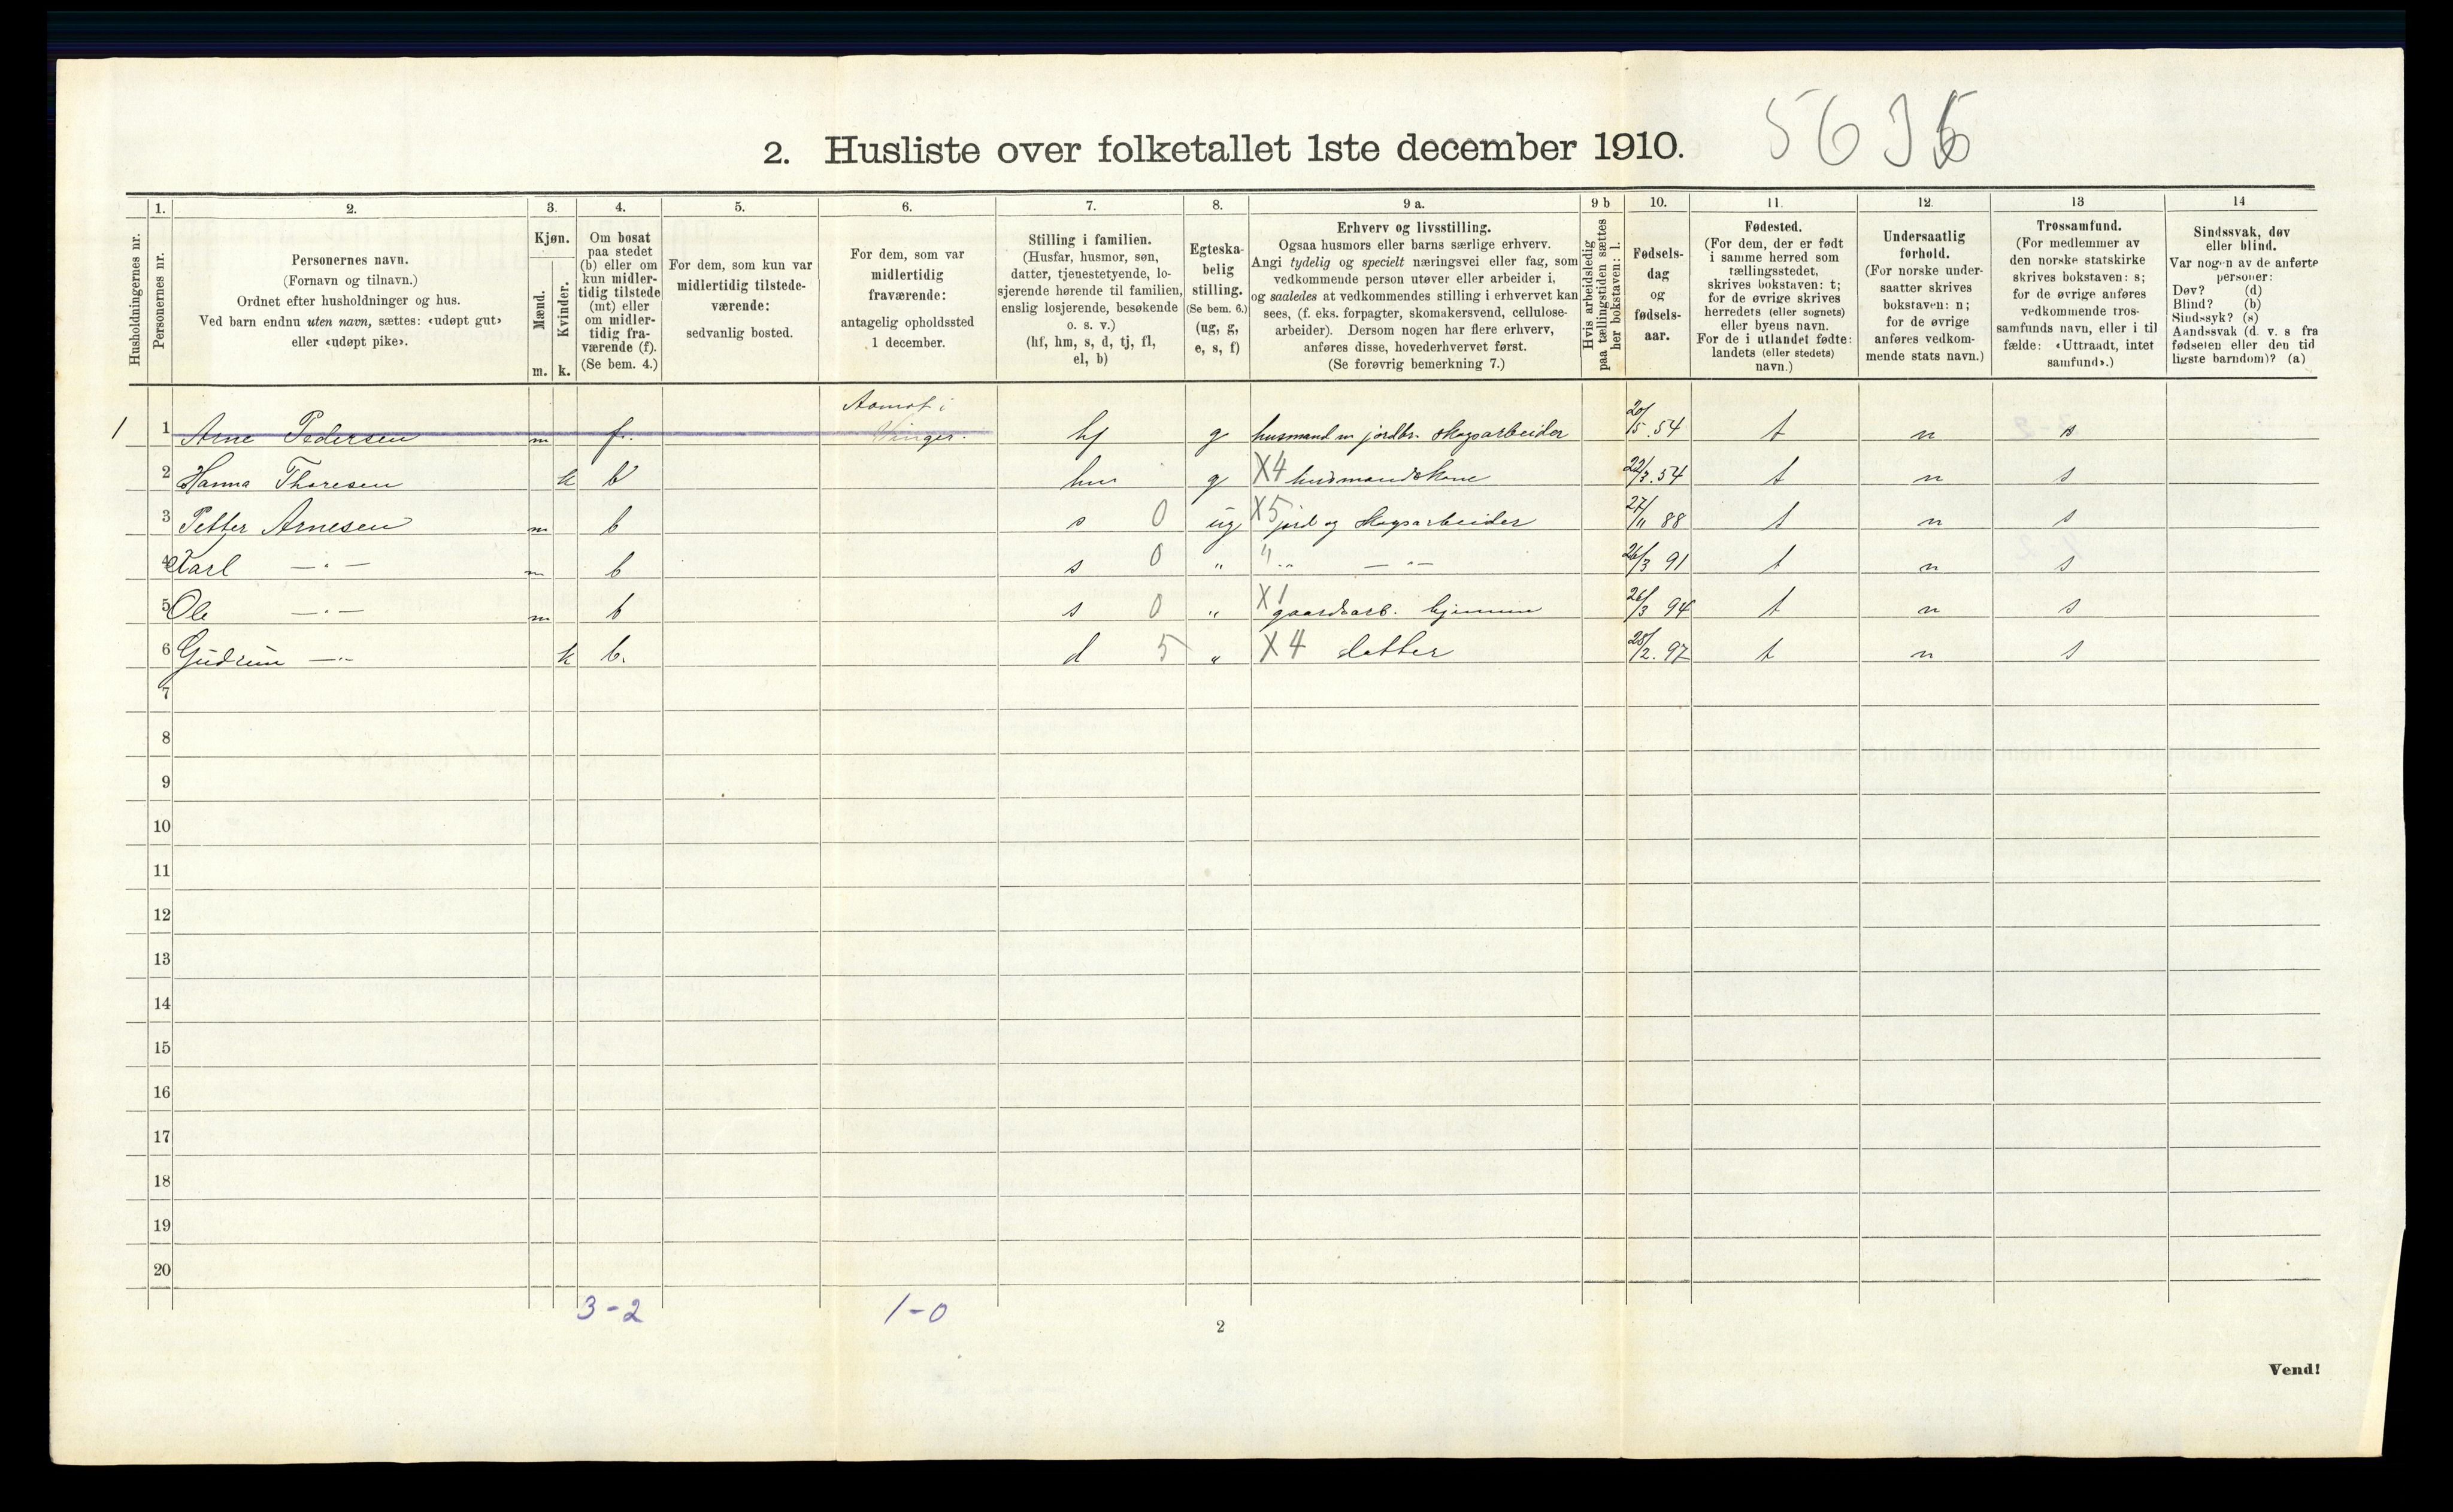 5635
2. Husliste over folketallet 1ste december 1910.
Husholdningernes nr.
1.
Personernes nr.
2.
Personernes navn.
(Fornavn og tilnavn.)
Ordnet efter husholdninger og hus.
Ved barn endnu uten navn, sættes: «udøpt gut»
eller «udøpt pike».
3.
Kjøn.
Mænd.
Kvinder.
m. k.
4.
Om bosat
paa stedet
(b) eller om
kun midler-
tidig tilstede
(mt) eller
om midler-
tidig fra-
værende (f).
(Se bem. 4.)
5.
For dem, som kun var
midlertidig tilstede-
værende:
sedvanlig bosted.
6.
For dem, som var
midlertidig
fraværende:
antagelig opholdssted
1 december.
7.
Stilling i familien.
(Husfar, husmor, søn,
datter, tjenestetyende, lo-
sjerende hørende til familien,
enslig losjerende, besøkende
o. s. v.)
(hf, hm, s, d, tj, fl,
el, b)
8.
Egteska-
belig
stilling.
(Se bem. 6.)
(ug, g,
e, s, f)
9 a.
Erhverv og livsstilling.
Ogsaa husmors eller barns særlige erhverv.
Angi tydelig og specielt næringsvei eller fag, som
vedkommende person utøver eller arbeider i,
og saaledes at vedkommendes stilling i erhvervet kan
sees, (f. eks. forpagter, skomakersvend, cellulose-
arbeider). Dersom nogen har flere erhverv,
anføres disse, hovederhvervet først.
(Se forøvrig bemerkning 7.)
9 b
Hvis arbeidsledig
paa tællingstiden sættes
her bokstaven: l.
10.
Fødsels-
dag
og
fødsels-
aar.
11.
Fødested.
(For dem, der er født
i samme herred som
tællingsstedet,
skrives bokstaven: t;
for de øvrige skrives
herredets (eller sognets)
eller byens navn.
For de i utlandet fødte:
landets (eller stedets)
navn.)
12.
Undersaatlig
forhold.
(For norske under-
saatter skrives
bokstaven: n;
for de øvrige
anføres vedkom-
mende stats navn.)
13
Trossamfund.
(For medlemmer av
den norske statskirke
skrives bokstaven: s;
for de øvrige anføres
vedkommende tros-
samfunds navn, eller i til
fælde: «Uttraadt, intet
samfund».)
14
Sindssvak, døv
eller blind.
Var nogen av de anførte
personer:
Døv? (d)
Blind? (b)
Sindssyk? (s)
Aandssvak (d. v. s fra
fødselen eller den tid
ligste barndom)? (a)
Aamot i
1 1 Arne Pedersen m f. Vinger. hf g husmand m jordbr. skogsarbeider 20/5.54 t n s
2 Hanna Thoresen k b hm g X4 husmandskone 22/3.54 t n s
3 Petter Arnesen m b s 0 ug X5 jord og skogsarbeider 27/11 88 t n s
4 Karl —"— m b s 0 " " —"— 26/3 91 t n s
5 Ole —"— m b s 0 " X1 gaardsarb. hjemme 26/3 94 t n s
6 Gudrun —"— k b. d 5 " X4 datter 28/2.97 t n s
7
8
9
10
11
12
13
14
15
16
17
18
19
20
3-2 1-0
2
Vend!